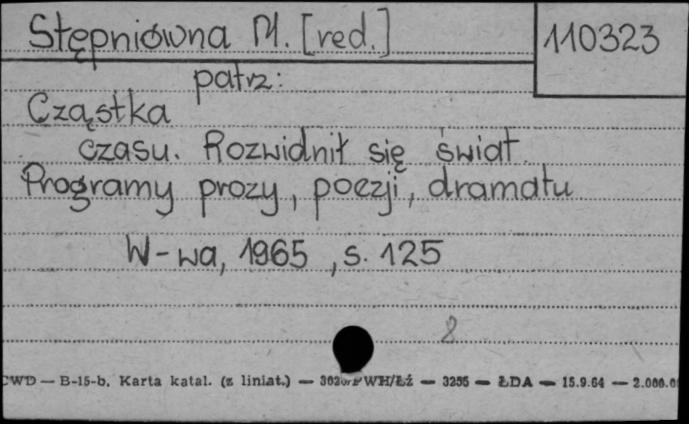 Stępniówna M. [red.]
110323
patrz:
Cząstka
czasu. Rozwidnił się świat.
Programy prozy, poezji, dramatu
W-wa, 1965, s. 125
8
CWD — B-15-b. Karta katal. (z liniat.) — WH/Łź — 3255 — ŁDA — 15.9.64 — 2.000.0